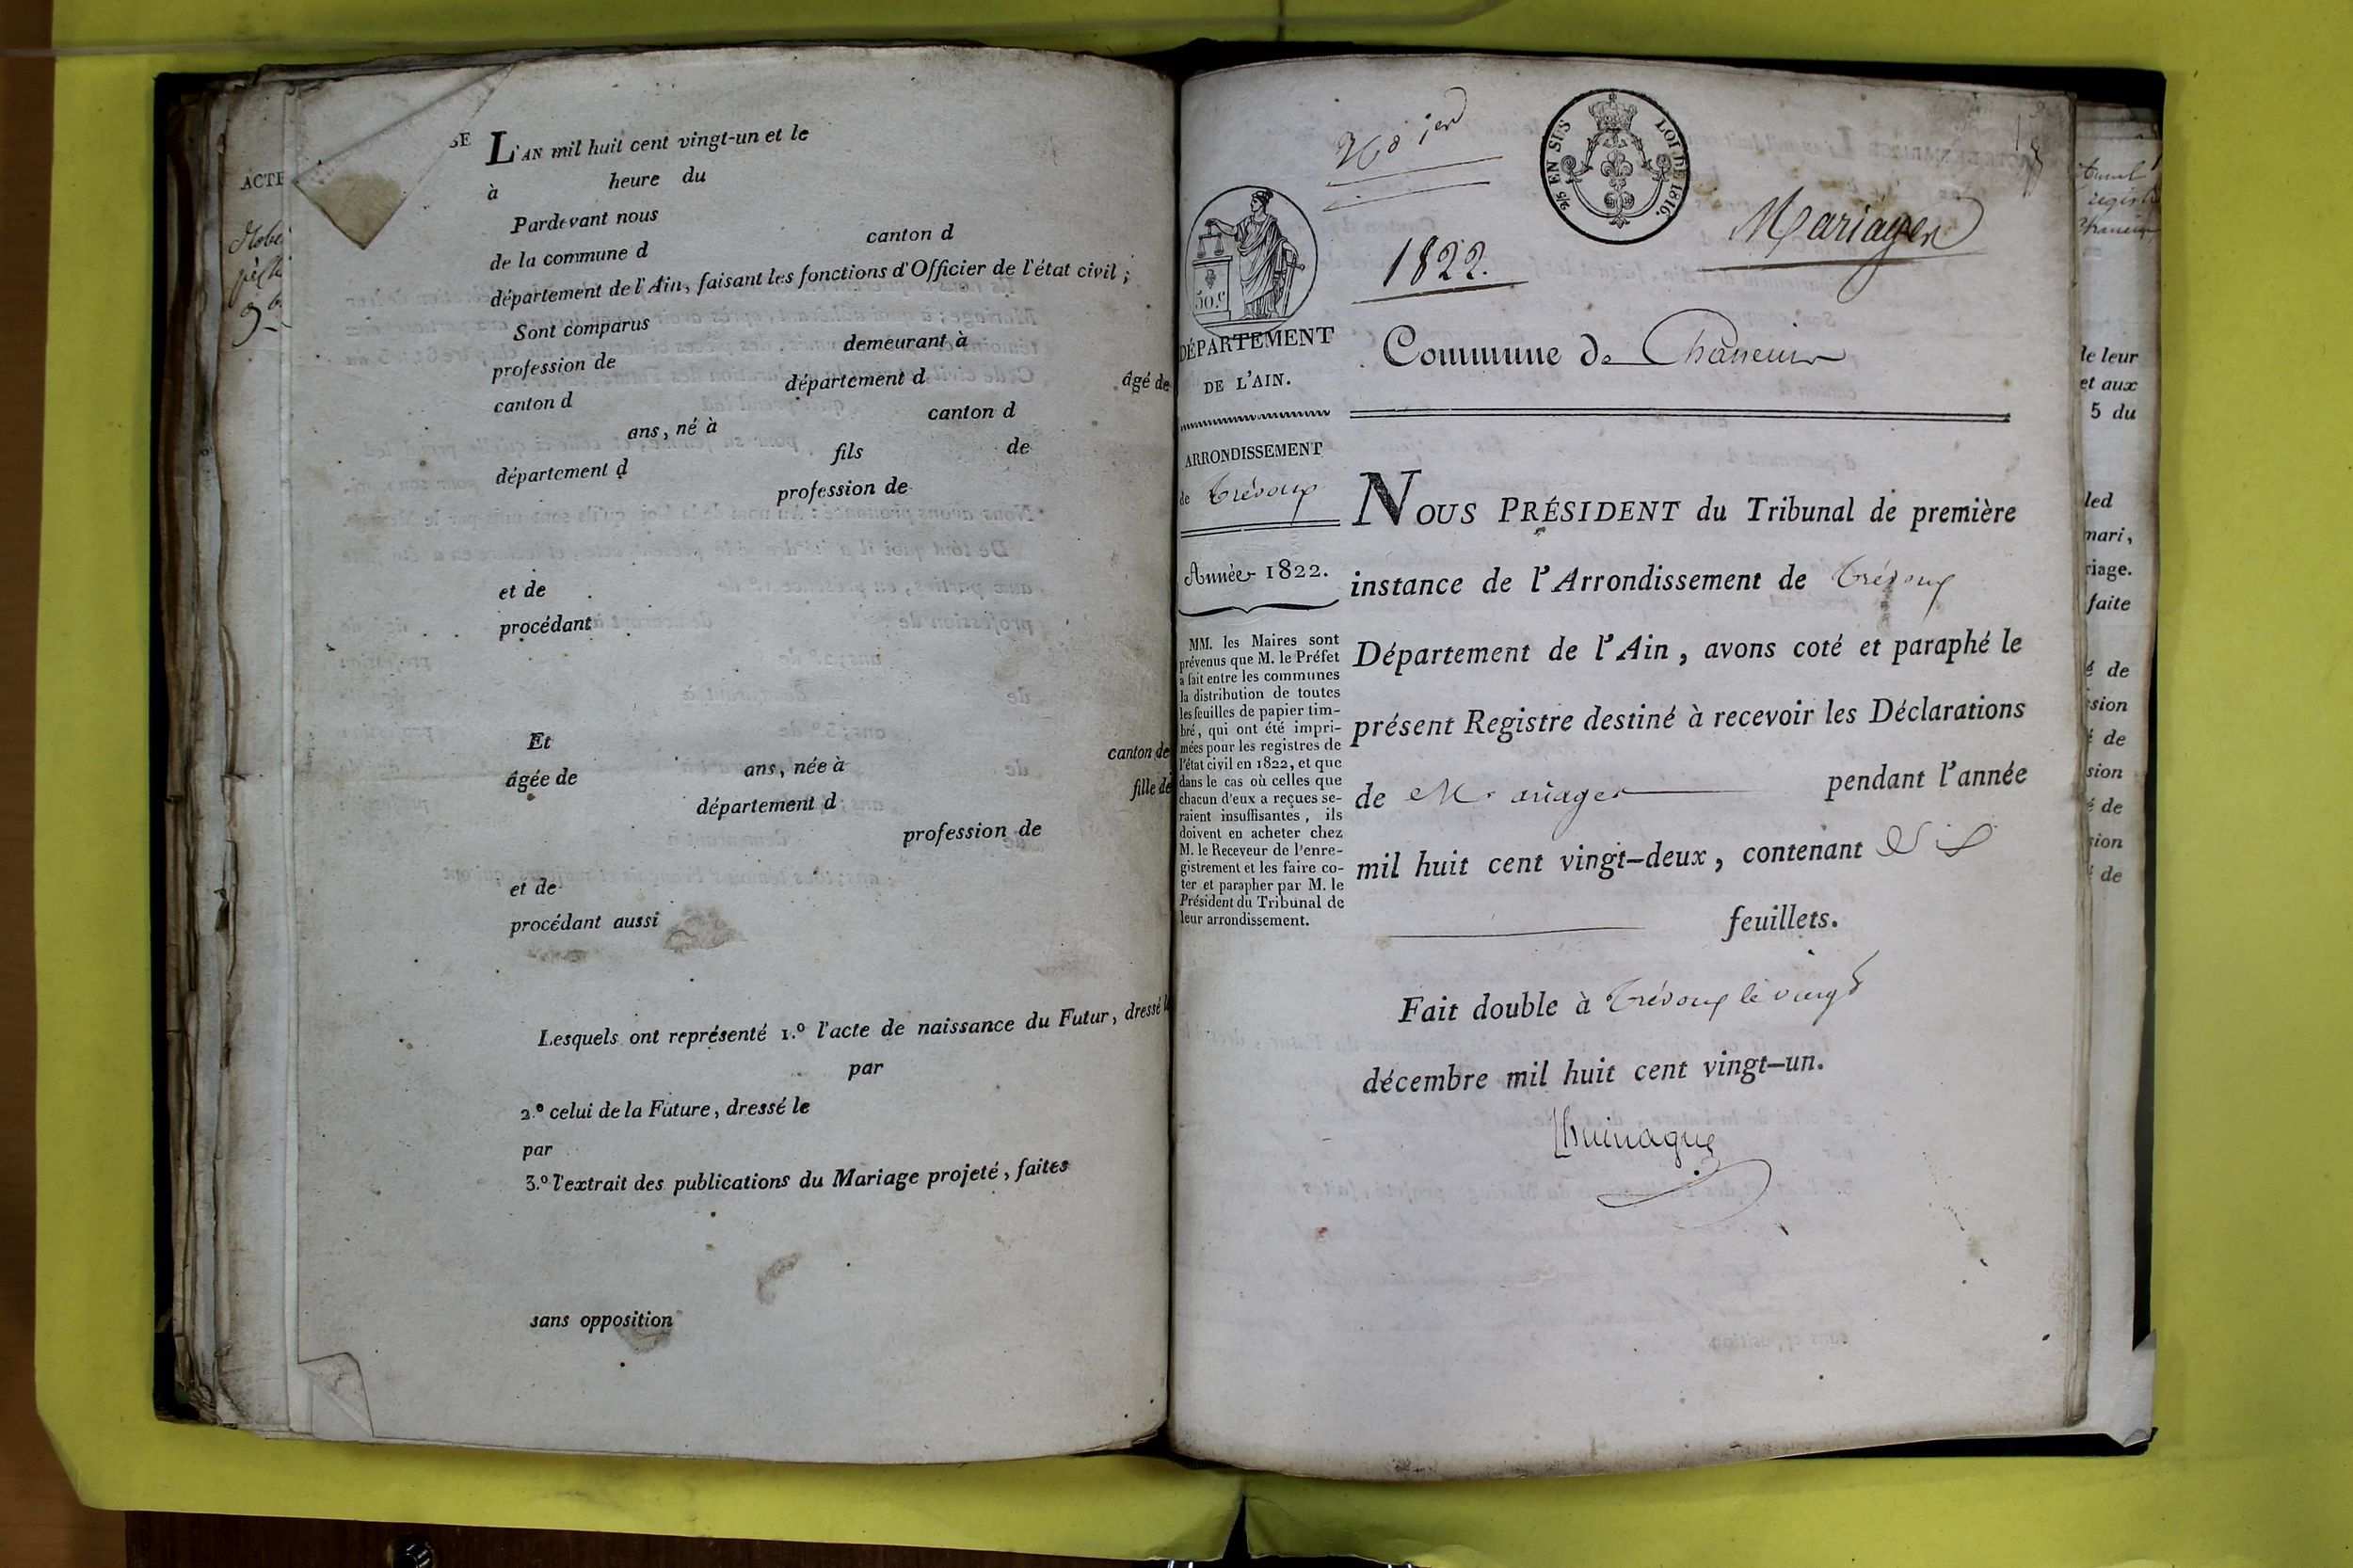 ACTE
L'AN mil huit cent vingt-un et le
à heure du
Pardevant nous
de la commune d canton d
département de l'Ain, faisant les fonctions d'Officier de l'état civil ;
Sont comparus
profession de demeurant à
canton d département d âgé de
ans, né à canton d
département d fils de
profession de
et de
procédant
Et
âgée de ans, née à canton de
département d fille de
profession de
et de
procédant aussi
Lesquels ont représenté 1.º l'acte de naissance du Futur, dressé
par
2.º celui de la Future, dressé le
par
3.º l'extrait des publications du Mariage projeté, faites
sans opposition
5/6 EN SUS
LOI DE 1816.
50.C
1822.
Mariages
DÉPARTEMENT
DE L'AIN.
ARRONDISSEMENT
de Trévoux
Année 1822.
MM. les Maires sont
prévenus que M. le Préfet
a fait entre les communes
la distribution de toutes
les feuilles de papier tim-
bré, qui ont été impri-
mées pour les registres de
l'état civil en 1822, et que
dans le cas où celles que
chacun d'eux a reçues se-
raient insuffisantes, ils
doivent en acheter chez
M. le Receveur de l'enre-
gistrement et les faire co-
ter et parapher par M. le
Président du Tribunal de
leur arrondissement.
Commune de Chaneins
NOUS PRÉSIDENT du Tribunal de première
instance de l'Arrondissement de Trévoux
Département de l'Ain, avons coté et paraphé le
présent Registre destiné à recevoir les Déclarations
de Mariages pendant l'année
mil huit cent vingt-deux, contenant
feuillets.
Fait double à Trévoux le vingt
décembre mil huit cent vingt-un.
de leur
et aux
5 du
led
mari,
riage.
faite
de
sion
de
sion
de
sion
de